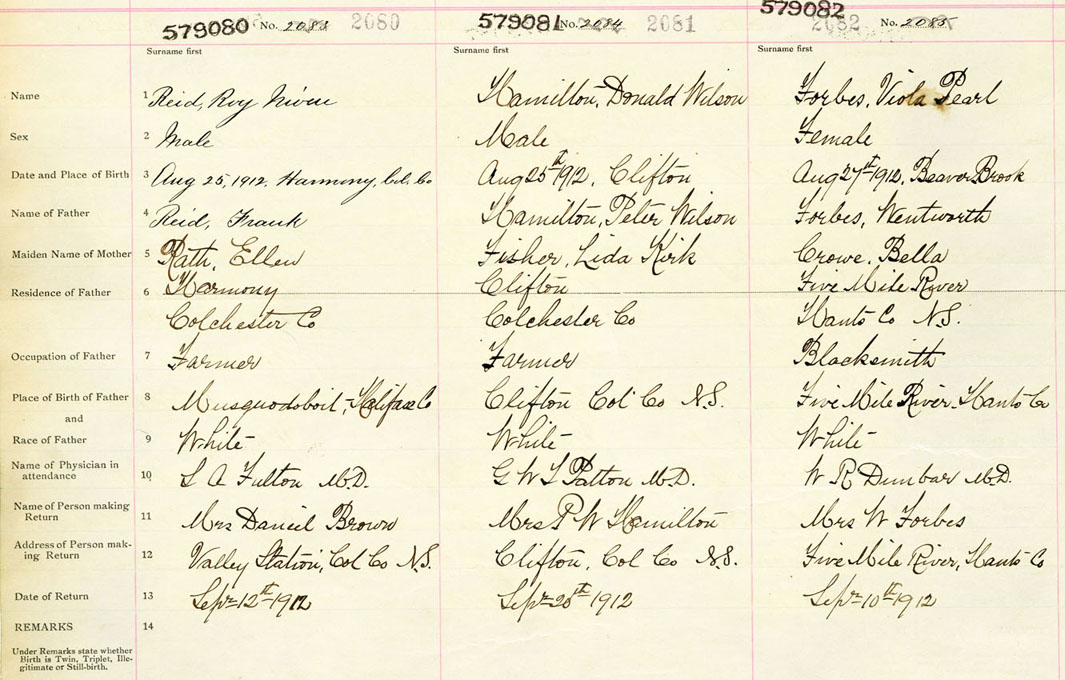 579080 No. 2083 2080 579081 No. 2084 2081 579082 2082 No. 2085
Surname first Surname first Surname first
Name 1 Reid, Roy Niven Hamilton, Donald Wilson Forbes, Viola Pearl
Sex 2 Male Male Female
Date and Place of Birth 3 Aug 25, 1912. Harmony, Col. Co Aug 25th 1912, Clifton Aug 27th 1912, Beaver Brook
Name of Father 4 Reid, Frank Hamilton, Peter Wilson Forbes, Wentworth
Maiden Name of Mother 5 Rath, Ellen Fisher, Lida Kirk Crowe, Bella
Residence of Father 6 Harmony Clifton Five Mile River
Colchester Co Colchester Co Hants Co N.S.
Occupation of Father 7 Farmer Farmer Blacksmith
Place of Birth of Father 8 Musquodoboit, Halifax Co Clifton Col Co N.S. Five Mile River. Hants Co
and
Race of Father 9 White White White
Name of Physician in
attendance 10 S A Fulton M.D. G W T Patton M.D. W R Dunbar M.D.
Name of Person making
Return 11 Mrs Daniel Brown Mrs P W Hamilton Mrs W Forbes
Address of Person mak-
ing Return 12 Valley Station, Col Co N.S. Clifton, Col Co N.S. Five Mile River, Hants Co
Date of Return 13 Sepr 12th 1912 Sepr 20th 1912 Sepr 10th 1912
REMARKS 14
Under Remarks state whether
Birth is Twin, Triplet, Ille-
gitimate or Still-birth.